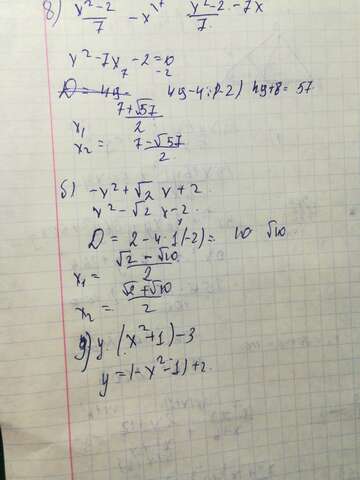 8) x²-2/7 - x\ x²-2-7x/7
x²-7x-2=0
D = 49 49-4·(-2) 49+8=57
x₁ 7+√57/2
x₂ = 7-√57/2
б) -x²+√2 x+2
x²-√2 x-2
D = 2-4·1(-2)= 10 √10
x₁= √2-√10/2
x₂= √2+√10/2
g) y (x²+1)-3
y=(-x²-1)+2